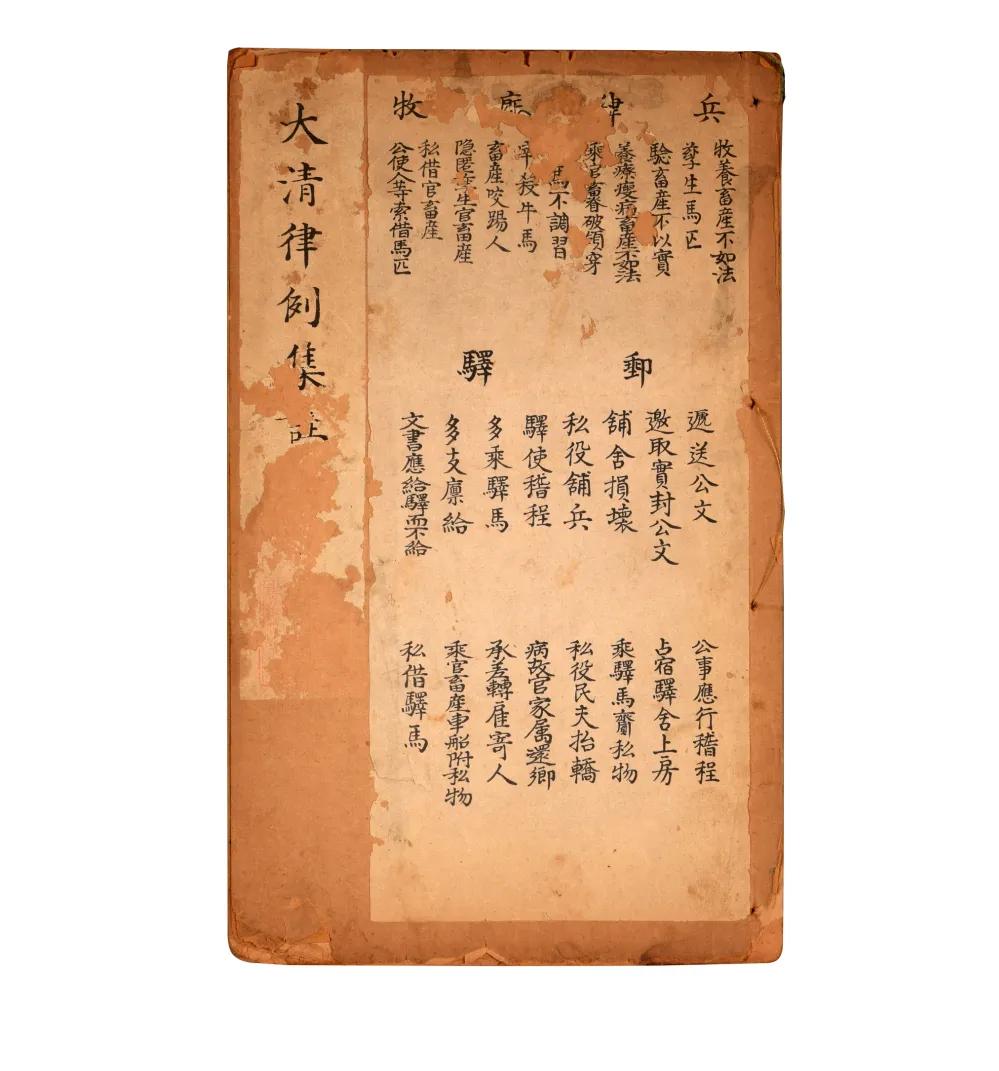 大清律例集註
兵律廐牧
牧養畜産不如法
孳生馬匹
驗畜産不以實
養療瘦病畜産不如法
乘官畜脊破領穿
馬不調習
宰殺牛馬
畜産咬踢人
隐匿孳生官畜産
私借官畜産
公使人等索借馬匹
郵驛
遞送公文
邀取實封公文
舖舍損壊
私役舖兵
驛使稽程
多乘驛馬
多支廩給
文書應給驛而不給
公事應行稽程
占宿驛舍上房
乘驛馬齎私物
私役民夫抬轎
病故官家属還鄉
承差轉雇寄人
乘官畜産車船附私物
私借驛馬